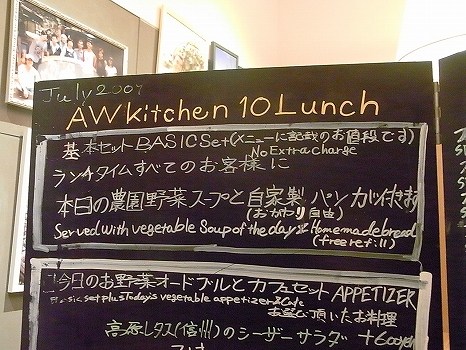 July 2009
AW kitchen 10 Lunch
基本セット BASIC Set (メニューに記載のお値段です)
No Extra charge
ランチタイムすべてのお客様に
本日の農園野菜スープと自家製パンが付きます
(おかわり自由)
Served with vegetable Soup of the day & Homemade bread
(free refill)
今日のお野菜オードブルとカフェセット APPETIZER
Basic set plus Today's vegetable appetizer & Cafe
お選び頂いたお料理
高原レタス(信州)のシーザーサラダ +600yen